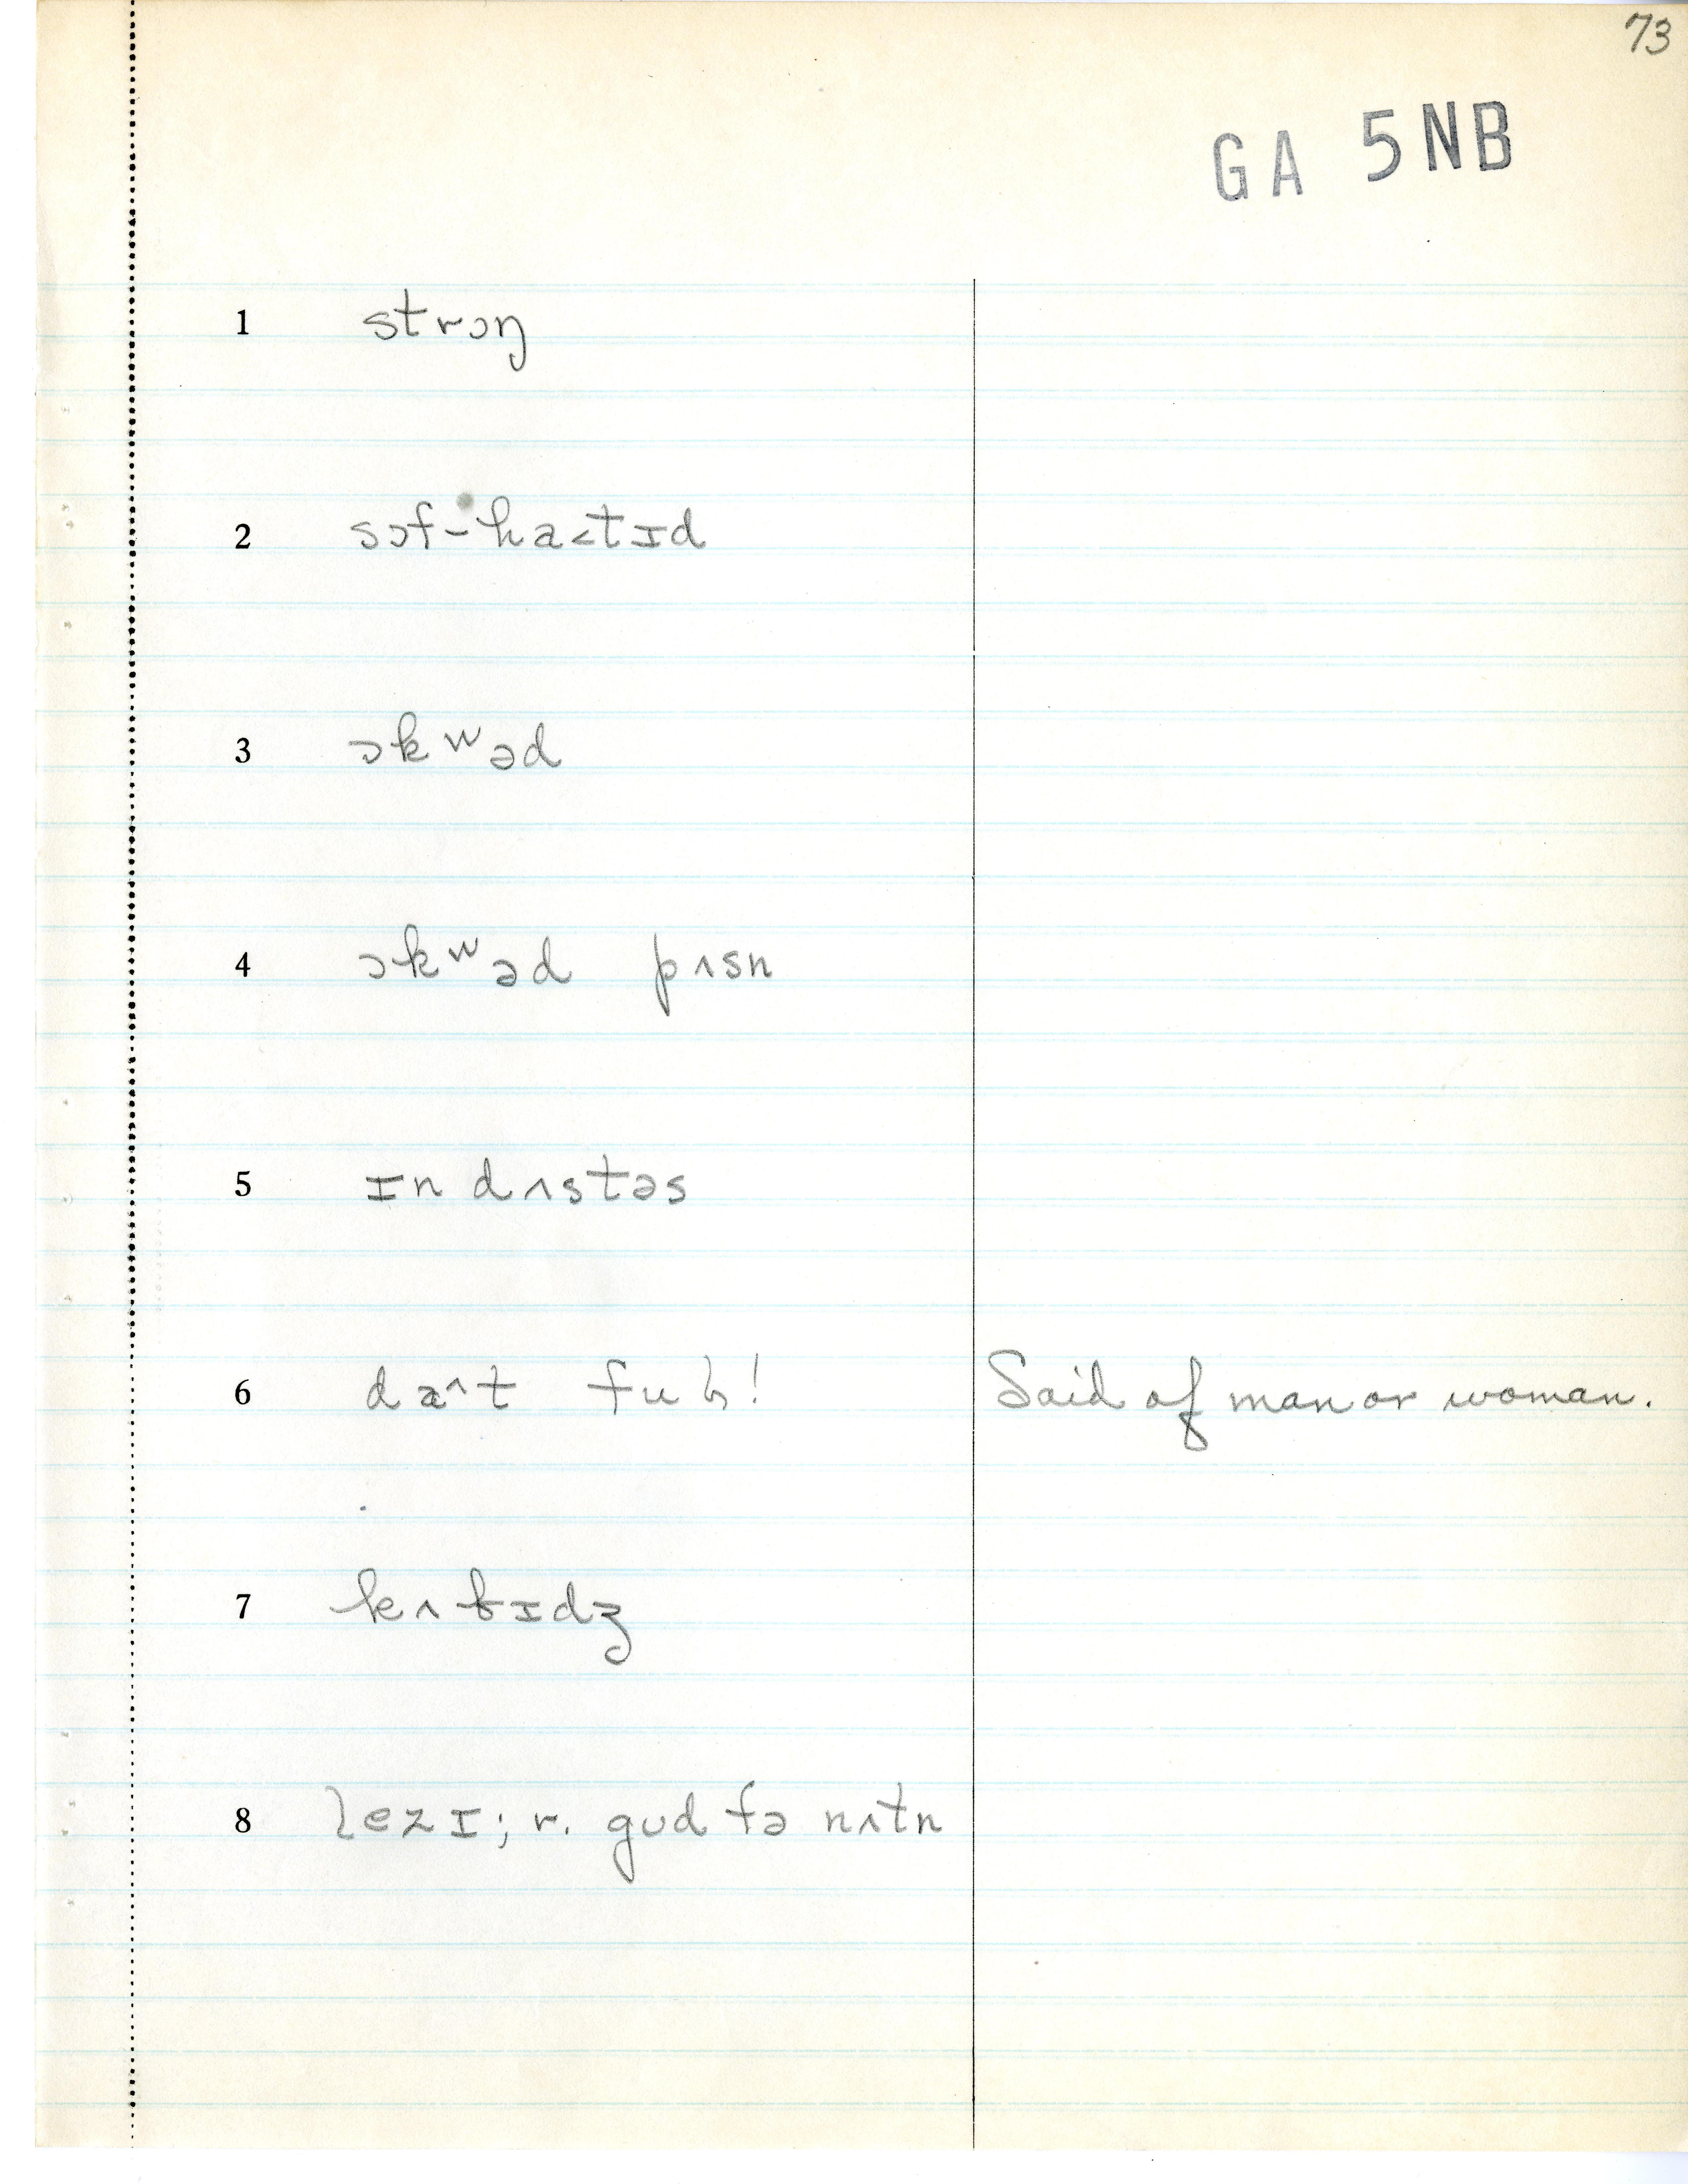 73
GA 5NB
1 strɔŋ
2 sɔf-ha˂tɪd
3 ɔkʷəd
4 ɔkʷəd pʌsn
5 ɪn dʌstəs
6 da^t fuɦ! Said of man or woman.
7 kʌbɪdʒ
8 lezɪ; r. gud fə nʌtn